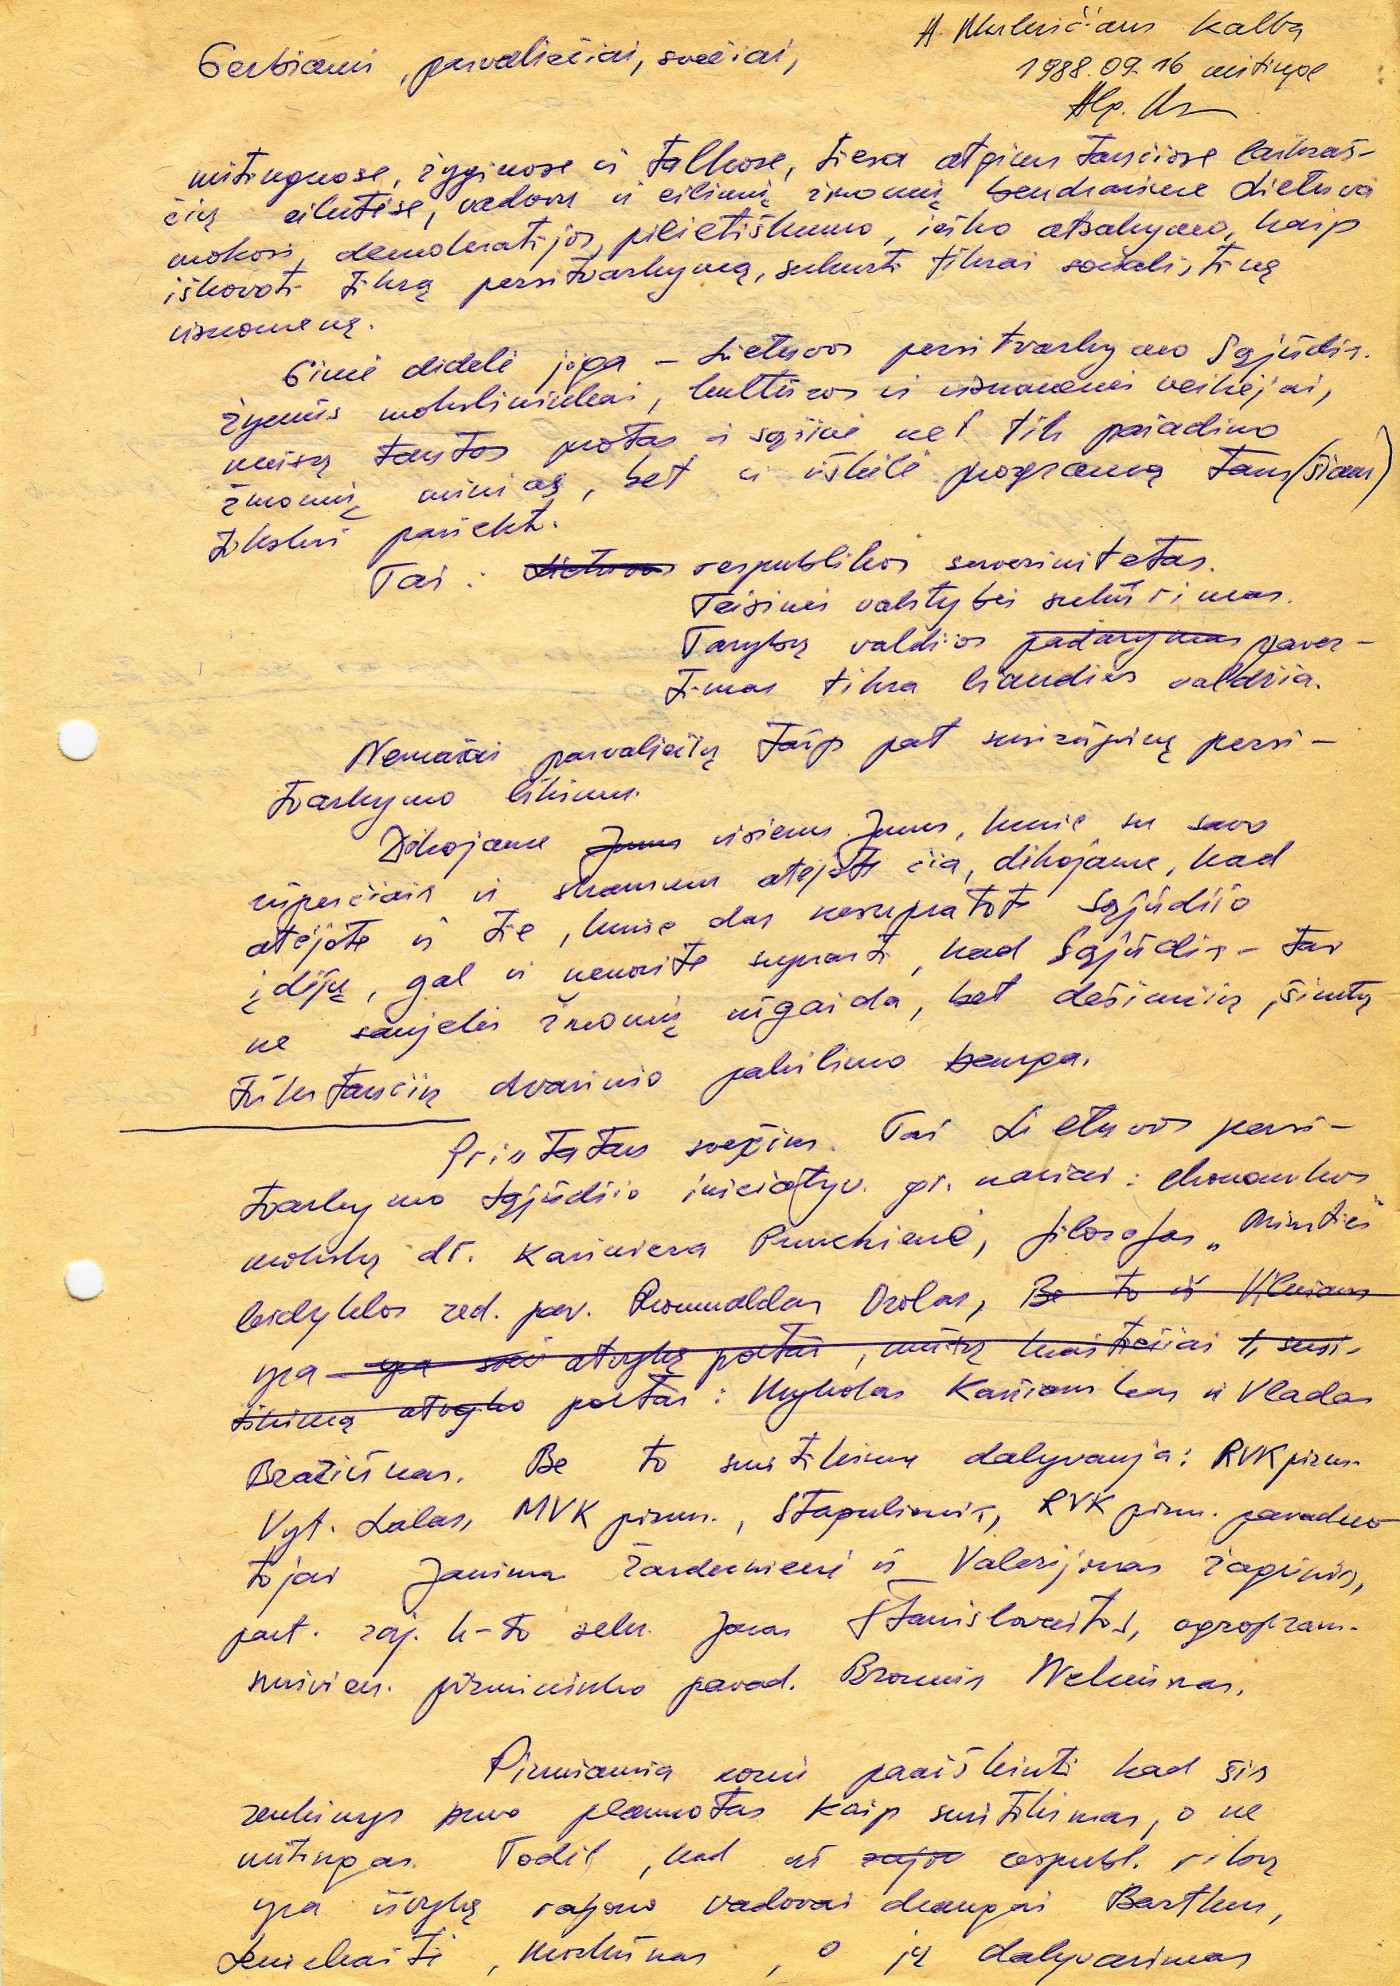 A. Mulevičiaus kalba
1988.09.16 mitinge
Gerbiami, pasvaliečiai, svečiai,
mitinguose, žygiuose ir talkose, tiesa atgimstančiose laikraš-
čių eilutėse, vadovų ir eilinių žmonių bendravime Lietuva
mokosi demokratijos, pilietiškumo, ieško atsakymo, kaip
iškovoti tikrą persitvarkymą, sukurti tikrai socialistinę
visuomenę.
Gimė didelė jėga – Lietuvos persitvarkymo Sąjūdis.
Žymūs mokslininkai, kultūros ir visuomenės veikėjai,
mūsų tautos protas ir sąžinė net tik pažadino
žmonių minias, bet ir iškėlė programą tam (šiam)
tikslui pasiekt.
Tai: Lietuvos respublikos suverenitetas.
Teisinės valstybės sukūrimas.
Tarybų valdžios padarymas paver-
timas tikra liaudies valdžia.
Nemažai pasvaliečių taip pat susirūpinę persi-
tvarkymo likimu.
Dėkojame Jums visiems Jums, kurie su savo
rūpesčiais ir skausmu atėjote čia, dėkojame, kad
atėjote ir tie, kurie dar nesupratot Sąjūdžio
idėjų, gal ir nenorite suprasti, kad Sąjūdis – tai
ne saujelės žmonių užgaida, bet dešimčių, šimtų
tūkstančių dvasinio pakilimo banga.
Pristatau svečius. Tai Lietuvos persi-
tvarkymo Sąjūdžio iniciatyv. gr. nariai: ekonomikos
mokslų dr. Kazimiera Prunskienė, filosofas „Minties"
leidyklos red. pav. Romualdas Ozolas, Be to iš Vilniaus
yra yra svei atvykę poetai, mūsų kraštiečiai į susi-
tikimą atvyko poetai: Mykolas Karčiauskas ir Vladas
Braziūnas. Be to susitikime dalyvauja: RVK pirm.
Vyt. Lalas, MVK pirm., Stapulionis, RVK pirm. pavaduo-
tojai Janina Žardeckienė ir Valerijonas Žagūnis,
part. raj. k-to sekr. Jonas Stanislovaitos, agropram.
susivien. pirmininko pavad. Bronius Nekiūnas.
Pirmiausia noriu paaiškinti kad šis
renkinys buvo planuotas kaip susitikimas, o ne
mitingas. Todėl, kad iš rajo respubl. ribų
yra išvykę rajono vadovai draugai Bartkus,
, o jų dalyvavimas